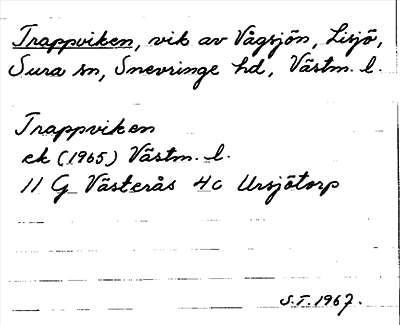 Trappviken, vik av Vågsjön, Lisjö,
Sura sn, Snevringe hd, Västm. l.
Trappviken
ek (1965) Västm. l.
11 G Västerås 4c Ursjötorp
S.T. 1967.